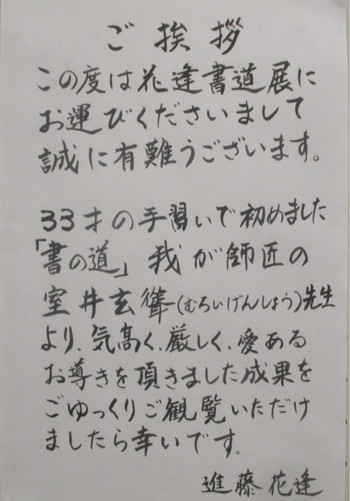 ご挨拶
この度は花逢書道展に
お運びくださいまして
誠に有難うございます。
33才の手習いで初めました
「書の道」我が師匠の
室井玄聳(むろいげんしょう)先生
より、気高く、厳しく、愛ある
お導きを頂きました成果を
ごゆっくりご観覧いただけ
ましたら幸いです。
進藤花逢